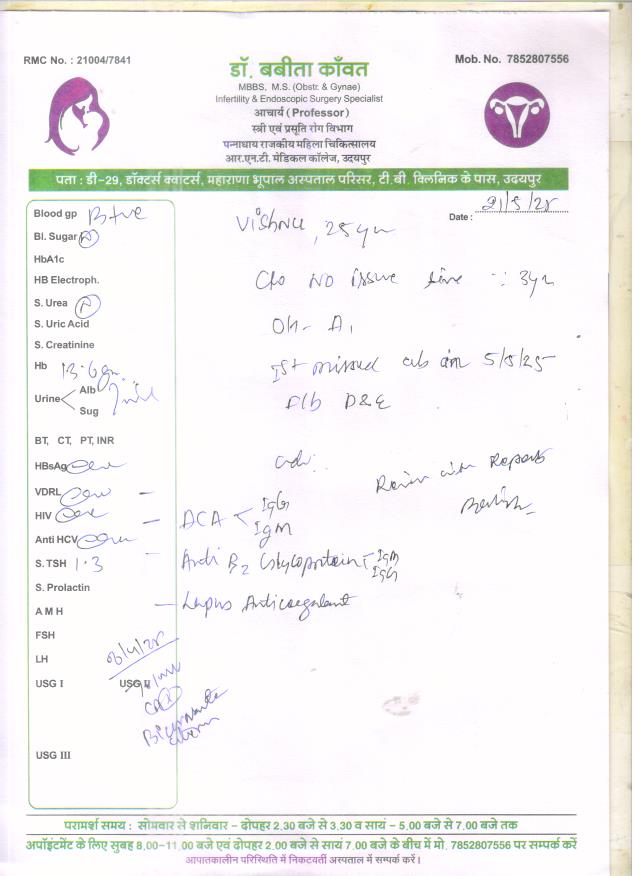 RMC No. : 21004/7841
Mob. No. 7852807556
डॉ. बबीता काँवत
MBBS, M.S. (Obstr. & Gynae)
Infertility & Endoscopic Surgery Specialist
आचार्य (Professor)
स्त्री एवं प्रसूति रोग विभाग
पन्नाधाय राजकीय महिला चिकित्सालय
आर.एन.टी. मेडिकल कॉलेज, उदयपुर
पता : डी-29, डॉक्टर्स क्वाटर्स, महाराणा भूपाल अस्पताल परिसर, टी.बी. क्लिनिक के पास, उदयपुर
Date :
Blood gp B+ve
Bl. Sugar N
HbA1c
HB Electroph.
S. Urea N
S. Uric Acid
S. Creatinine
Hb 13.6 gm
Urine Alb Nil
Sug
BT, CT, PT, INR
HBsAg
VDRL
HIV
Anti HCV
S. TSH 1.3
S. Prolactin
A M H
FSH
LH
USG I USG II
USG III
25 yr
C/o No issue since 3yr
O/H - A1
Ist missed ab in 5/5/25
F/b D&E
adv:
Review with Reports
- ACA < IgG
IgM
- Anti B2 Glycoprotein - IgM
IgG
- Lupus Anticoagulant
परामर्श समय : सोमवार से शनिवार - दोपहर 2.30 बजे से 3.30 व सायं - 5.00 बजे से 7.00 बजे तक
अपॉइंटमेंट के लिए सुबह 8.00-11.00 बजे एवं दोपहर 2.00 बजे से सायं 7.00 बजे के बीच में मो. 7852807556 पर सम्पर्क करें
आपातकालीन परिस्थिति में निकटवर्ती अस्पताल में सम्पर्क करें।